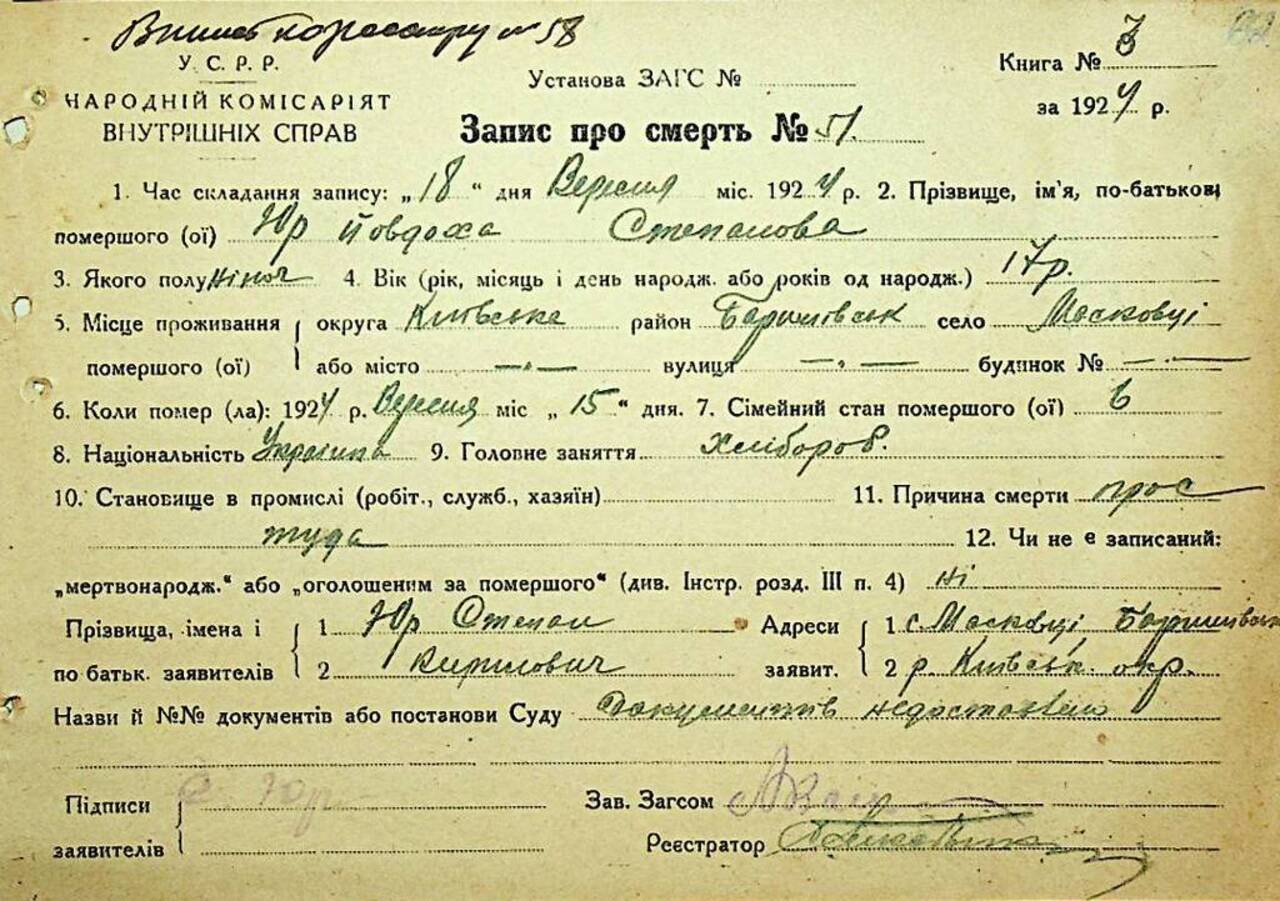 У. С. Р. Р.
НАРОДНІЙ КОМІСАРІЯТ
ВНУТРІШНІХ СПРАВ
Установа ЗАГС №
Книга № 3
за 1924 р.
Запис про смерть № 51.
1. Час складання запису: „18“ дня Вересня міс. 1924 р. 2. Прізвище, ім'я, по-батькові
помершого (ої) Юр Йовдоха Степанова
3. Якого полу жіноч 4. Вік (рік, місяць і день народж. або років од народж.) 17 р.
5. Місце проживання помершого (ої) округа Київська район Баришівськ село Масковці
або місто —„— вулиця —„— будинок № —„—
6. Коли помер (ла): 1924 р. Вересня міс „15“ дня. 7. Сімейний стан помершого (ої)
8. Національність Україпка 9. Головне заняття Хлібороб.
10. Становище в промислі (робіт., служб., хазяїн) 11. Причина смерти прос
туда 12. Чи не є записаний:
„мертвонародж.“ або „оголошеним за помершого“ (див. Інстр. розд. III п. 4) ні
Прізвища, імена і по батьк. заявителів 1 Юр Степан Адреси заявит. 1 с. Масковці Баришівськ
2 Кирилович 2 р. Київськ. окр.
Назви й №№ документів або постанови Суду Документів недоставлено
Підписи заявителів Юр Зав. Загсом
Реєстратор